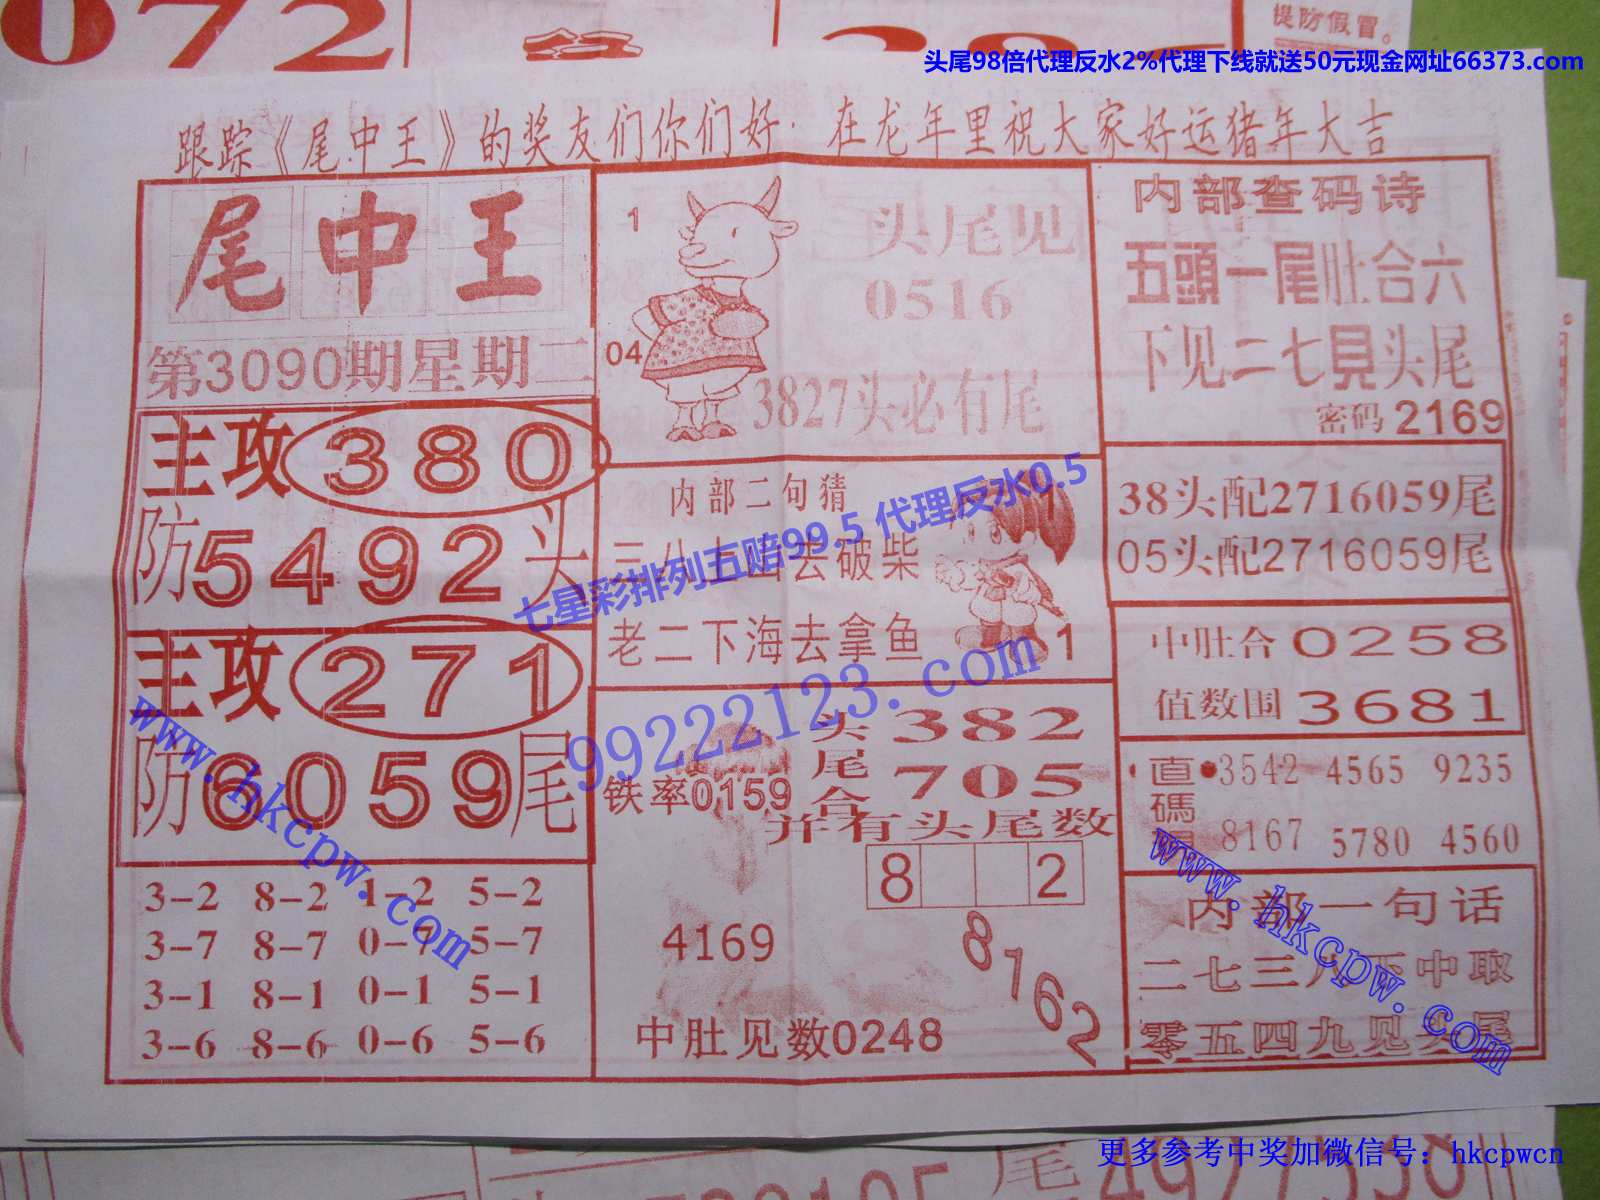 072
提防假冒。
头尾98倍代理反水2%代理下线就送50元现金网址66373.com
跟踪《尾中王》的奖友们你们好·在龙年里祝大家好运猪年大吉
尾中王
第3090期星期二
主攻380
防5492头
主攻271
防6059尾
3-2 8-2 1-2 5-2
3-7 8-7 0-7 5-7
3-1 8-1 0-1 5-1
3-6 8-6 0-6 5-6
1
04
头尾见
0516
3827头必有尾
内部二句猜
去破柴
老二下海去拿鱼
1
七星彩排列五赔99.5 代理反水0.5
99222123.com
铁率0159
头尾合
382
705
并有头尾数
8 2
4169
8162
中肚见数0248
内部查码诗
五頭一尾肚合六
下见二七見头尾
密码2169
38头配2716059尾
05头配2716059尾
中肚合 0258
值数围 3681
直碼
3542 4565 9235
8167 5780 4560
内部一句话
二七三八下中取
零五四九见头尾
www.hkcpw.com
www.hkcpw.com
更多参考中奖加微信号：hkcpwcn
尾4927538